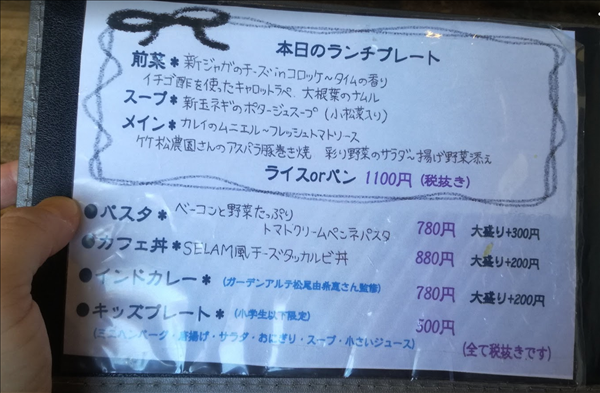 本日のランチプレート
前菜＊新ジャガのチーズinコロッケ～タイムの香り
イチゴ酢を使ったキャロットラペ、大根葉のナムル
スープ＊新玉ネギのポタージュスープ(小松菜入り)
メイン＊カレイのムニエル～フレッシュトマトソース
竹松農園さんのアスパラ豚巻き焼 彩り野菜のサラダ～揚げ野菜添え
ライスorパン 1100円 (税抜き)
●パスタ＊ベーコンと野菜たっぷり
トマトクリームペンネパスタ 780円 大盛り+300円
●カフェ丼＊SELAM風チーズタッカルビ丼 880円 大盛り+200円
●インドカレー＊(ガーデンアルテ松尾由希恵さん監修) 780円 大盛り+200円
●キッズプレート＊(小学生以下限定) 500円
(ミニハンバーグ・唐揚げ・サラダ・おにぎり・スープ・小さいジュース)
(全て税抜きです)